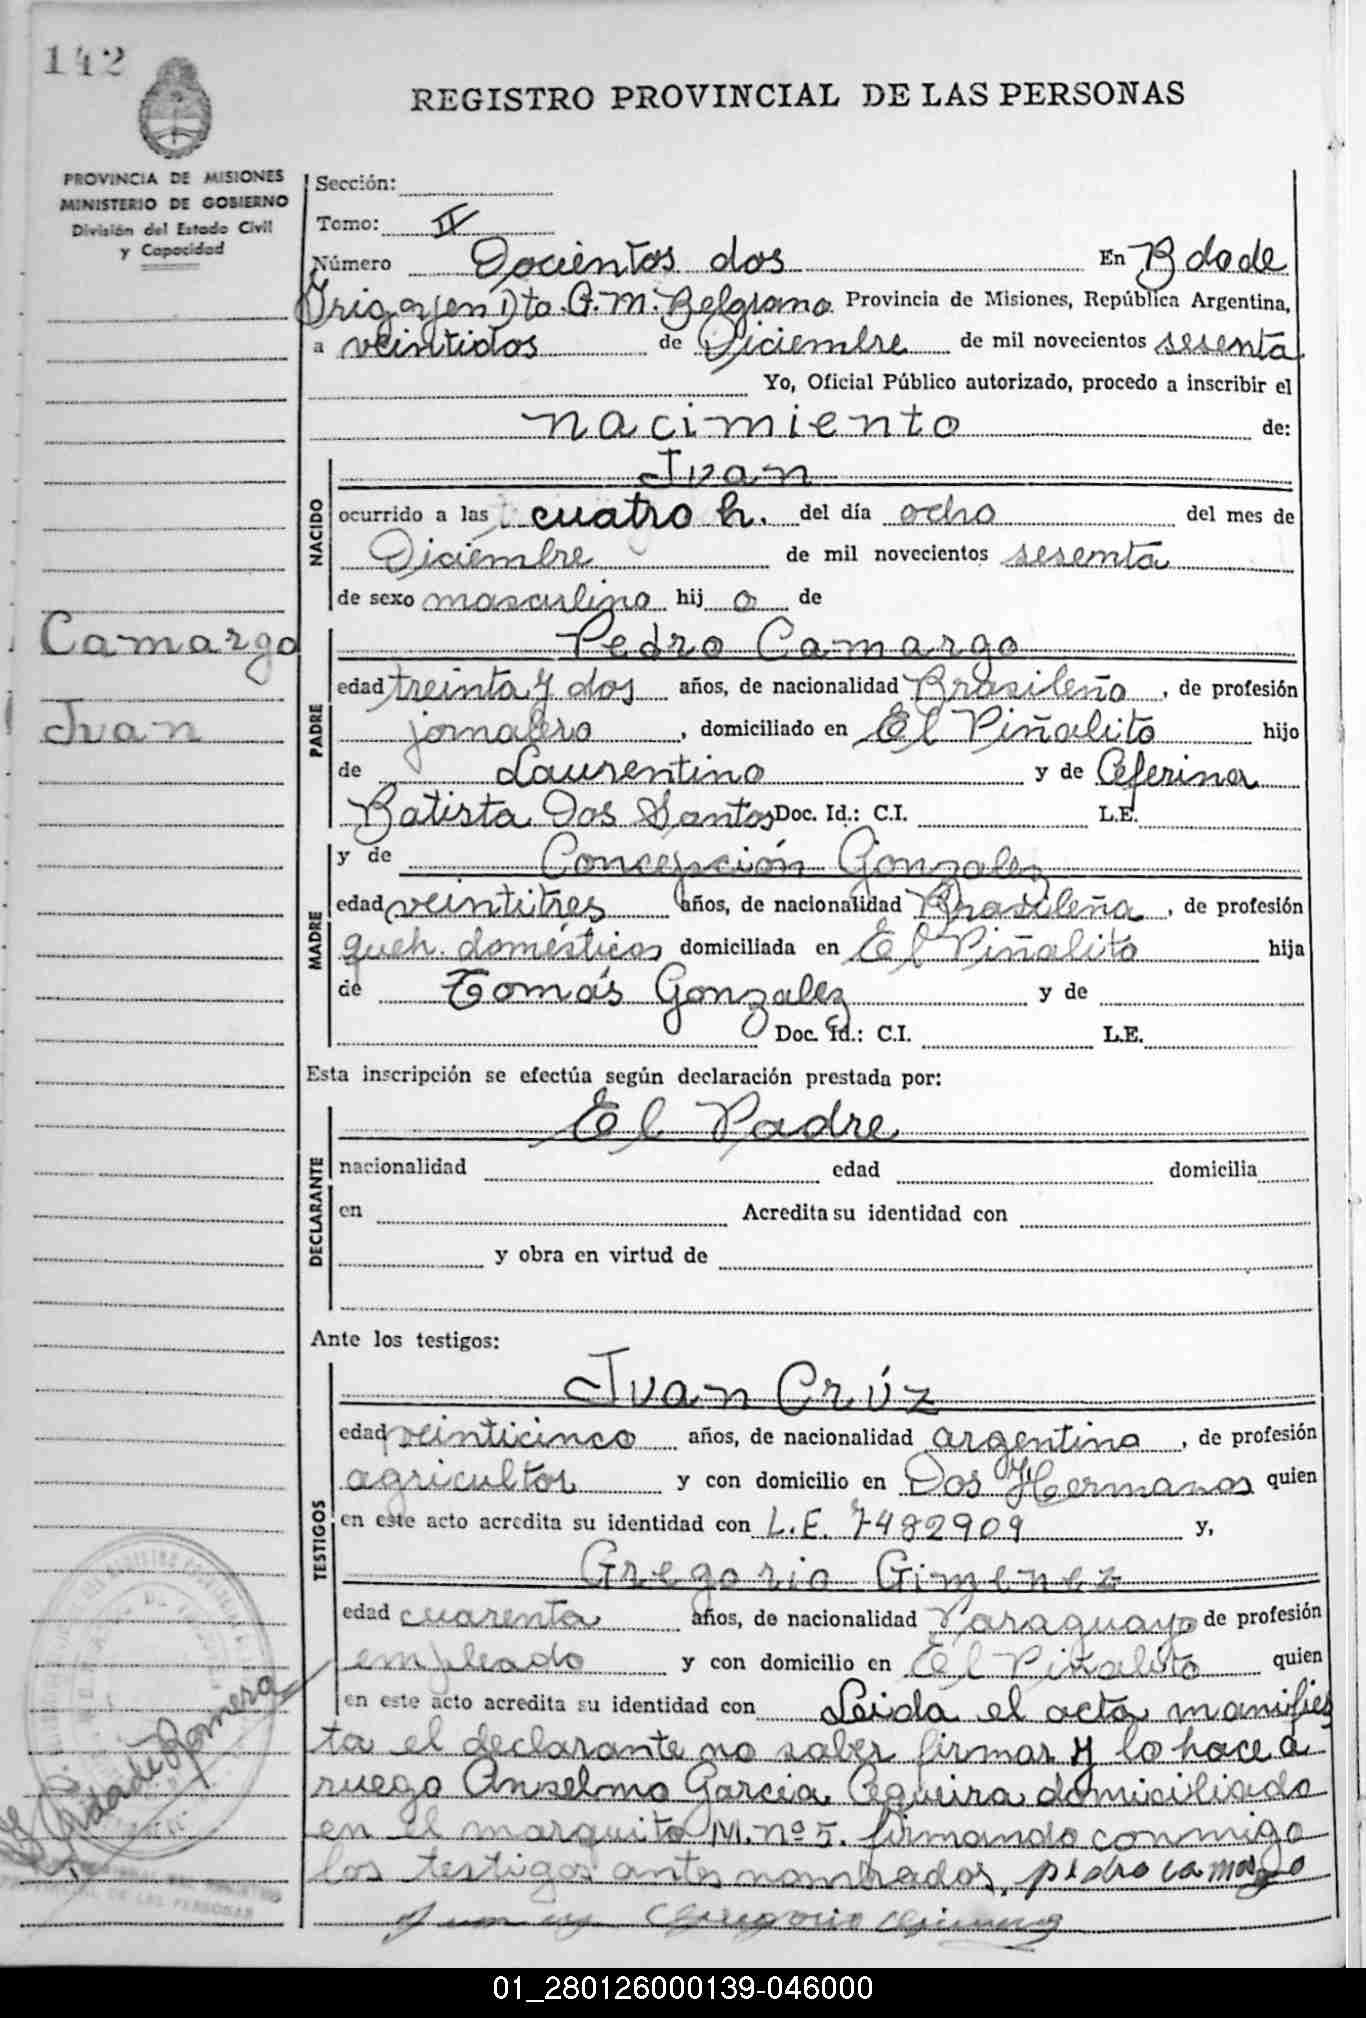 142
REGISTRO PROVINCIAL DE LAS PERSONAS
PROVINCIA DE MISIONES
MINISTERIO DE GOBIERNO
División del Estado Civil
y Capacidad
Sección:
Tomo: II
Número Docientos dos En Bdo de
Irigoyen Dto. G. M. Belgrano Provincia de Misiones, República Argentina,
a veintidos de Diciembre de mil novecientos sesenta
Yo, Oficial Público autorizado, procedo a inscribir el
nacimiento de:
NACIDO
Ivan
ocurrido a las cuatro h. del día ocho del mes de
Diciembre de mil novecientos sesenta
de sexo masculino hij o de
Camargo
Ivan
PADRE
Pedro Camargo
edad treinta y dos años, de nacionalidad Brasileño, de profesión
jornalero, domiciliado en El Piñalito hijo
de Laurentino y de Ceferina
Batista Dos Santos Doc. Id.: C.I. L.E.
MADRE
y de Concepción Gonzalez
edad veintitres años, de nacionalidad Brasileña, de profesión
queh. domésticos domiciliada en El Piñalito hija
de Tomás Gonzalez y de
Doc. Id.: C.I. L.E.
Esta inscripción se efectúa según declaración prestada por:
DECLARANTE
El Padre
nacionalidad edad domicilia
en Acredita su identidad con
y obra en virtud de
Ante los testigos:
TESTIGOS
Ivan Crúz
edad veinticinco años, de nacionalidad argentino, de profesión
agricultor y con domicilio en Dos Hermanos quien
en este acto acredita su identidad con L.E. 7482909 y,
Gregorio Gimenez
edad cuarenta años, de nacionalidad Paraguayo de profesión
empleado y con domicilio en El Piñalito quien
en este acto acredita su identidad con Leida el acta manifies
ta el declarante no saber firmar y lo hace a
ruego Anselmo Garcia domiciliado
en el marquito M. nº 5. firmando conmigo
los testigos antes nombrados. pedro camargo
Gregorio Gimenez
de Romero
PROVINCIAL DE LAS PERSONAS
01_280126000139-046000